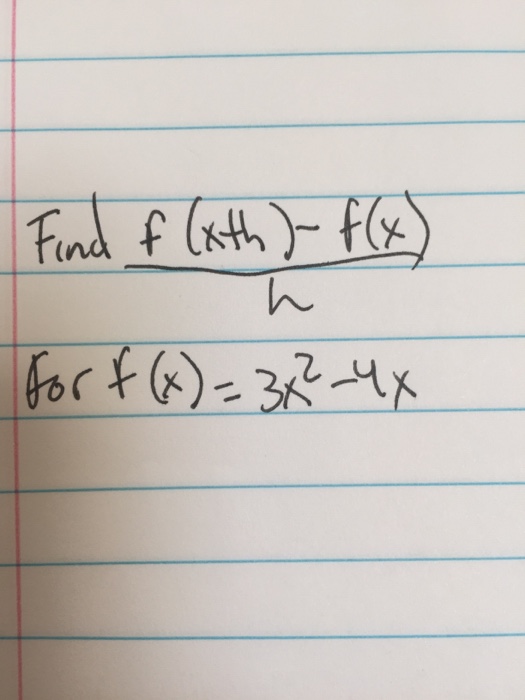 Find f(x+h)-f(x)
h
for f(x)=3x²-4x